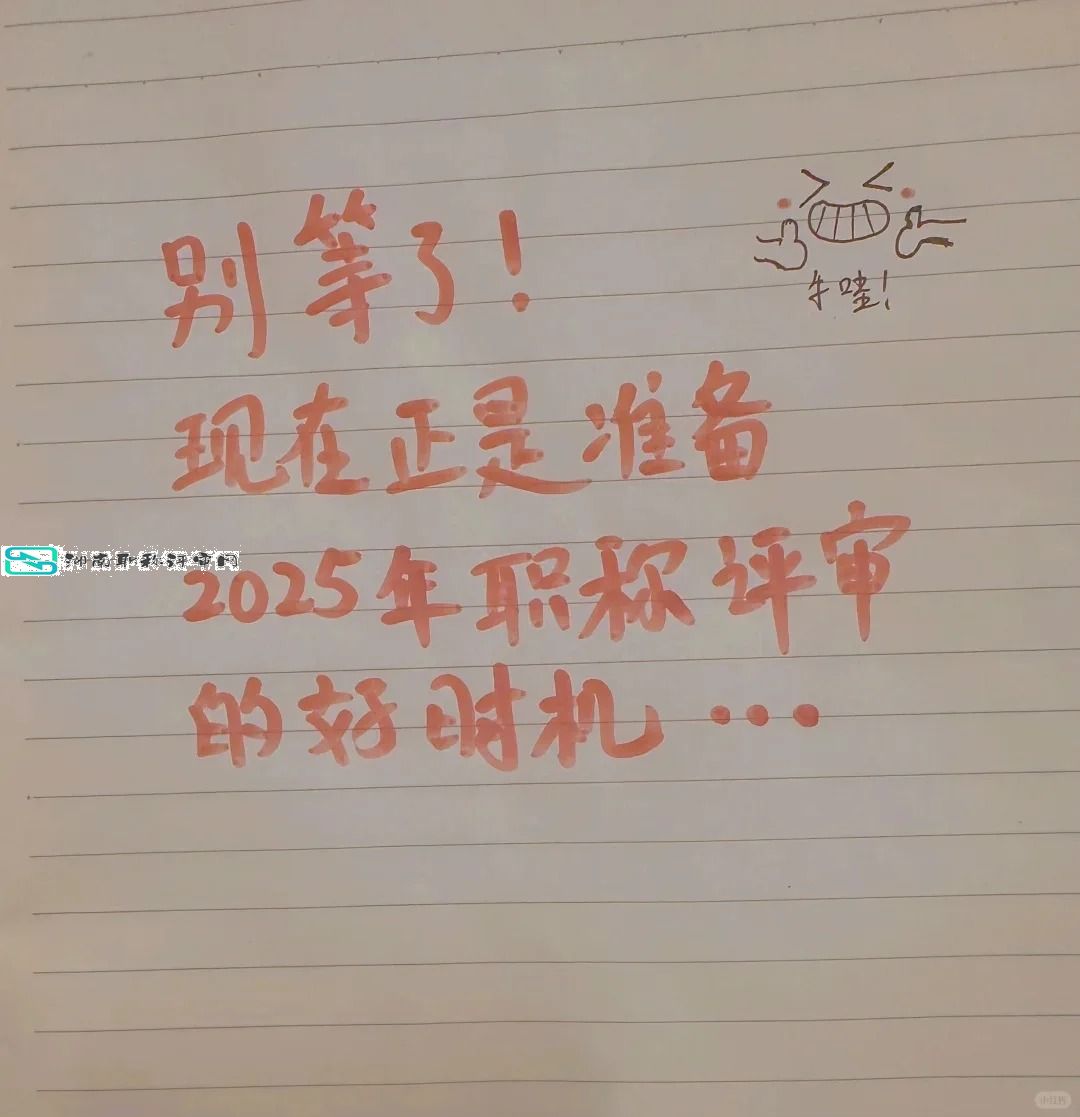 别等了！
牛哇！
现在正是准备
2025年职称评审
的好时机…
小红书